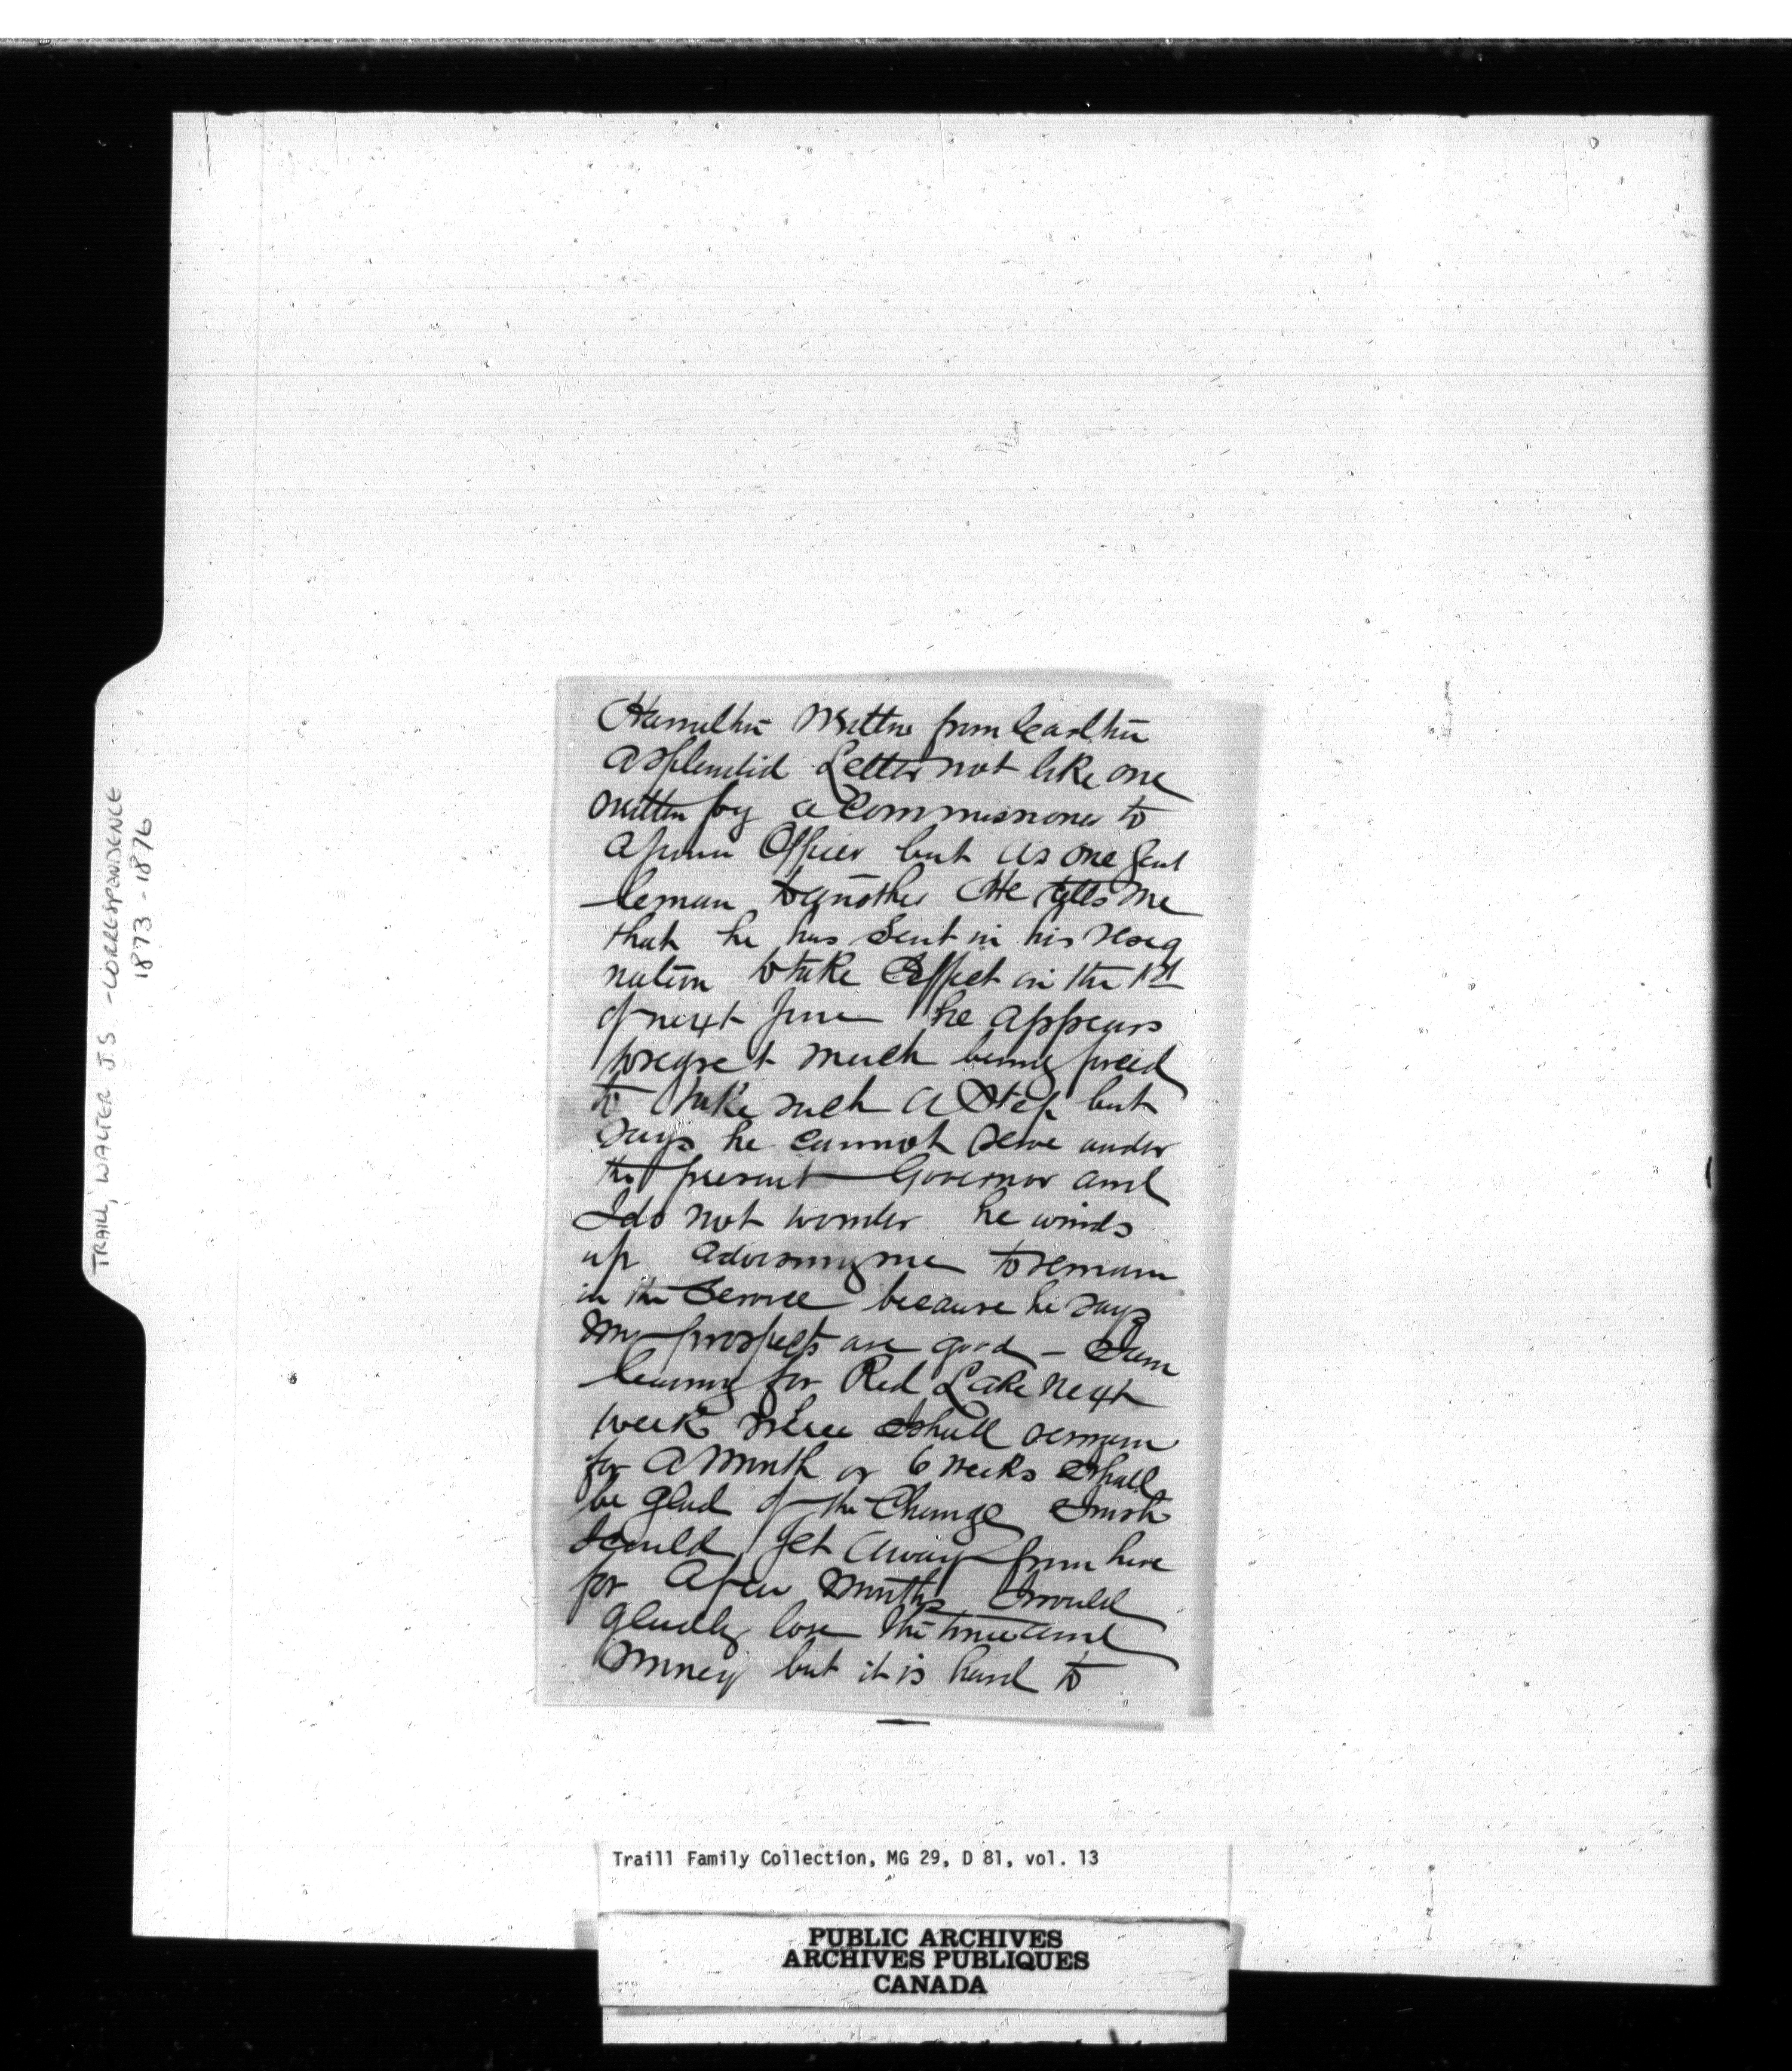 TRAILL, WALTER J S - CORRESPONDENCE
1873 - 1876
Hamilton Written from Carlton
a splendid Letter not like one
written by a Commissioner to
a junior Officer but as one gent
leman to another He tells me
that he has sent in his resig
nation to take Effect on the 1st
of next June he appears
to regret much being forced
to take such a Step but
says he cannot serve under
the present Governor and
I do not wonder he winds
up advising me to remain
in the Service because he says
my prospects are good - I am
leaving for Red Lake next
week where I shall remain
for a month or 6 weeks I shall
be glad of the Change I wish
I could get away from here
for a few months I would
gladly lose the time and
money but it is hard to
Traill Family Collection, MG 29, D 81, vol. 13
PUBLIC ARCHIVES
ARCHIVES PUBLIQUES
CANADA